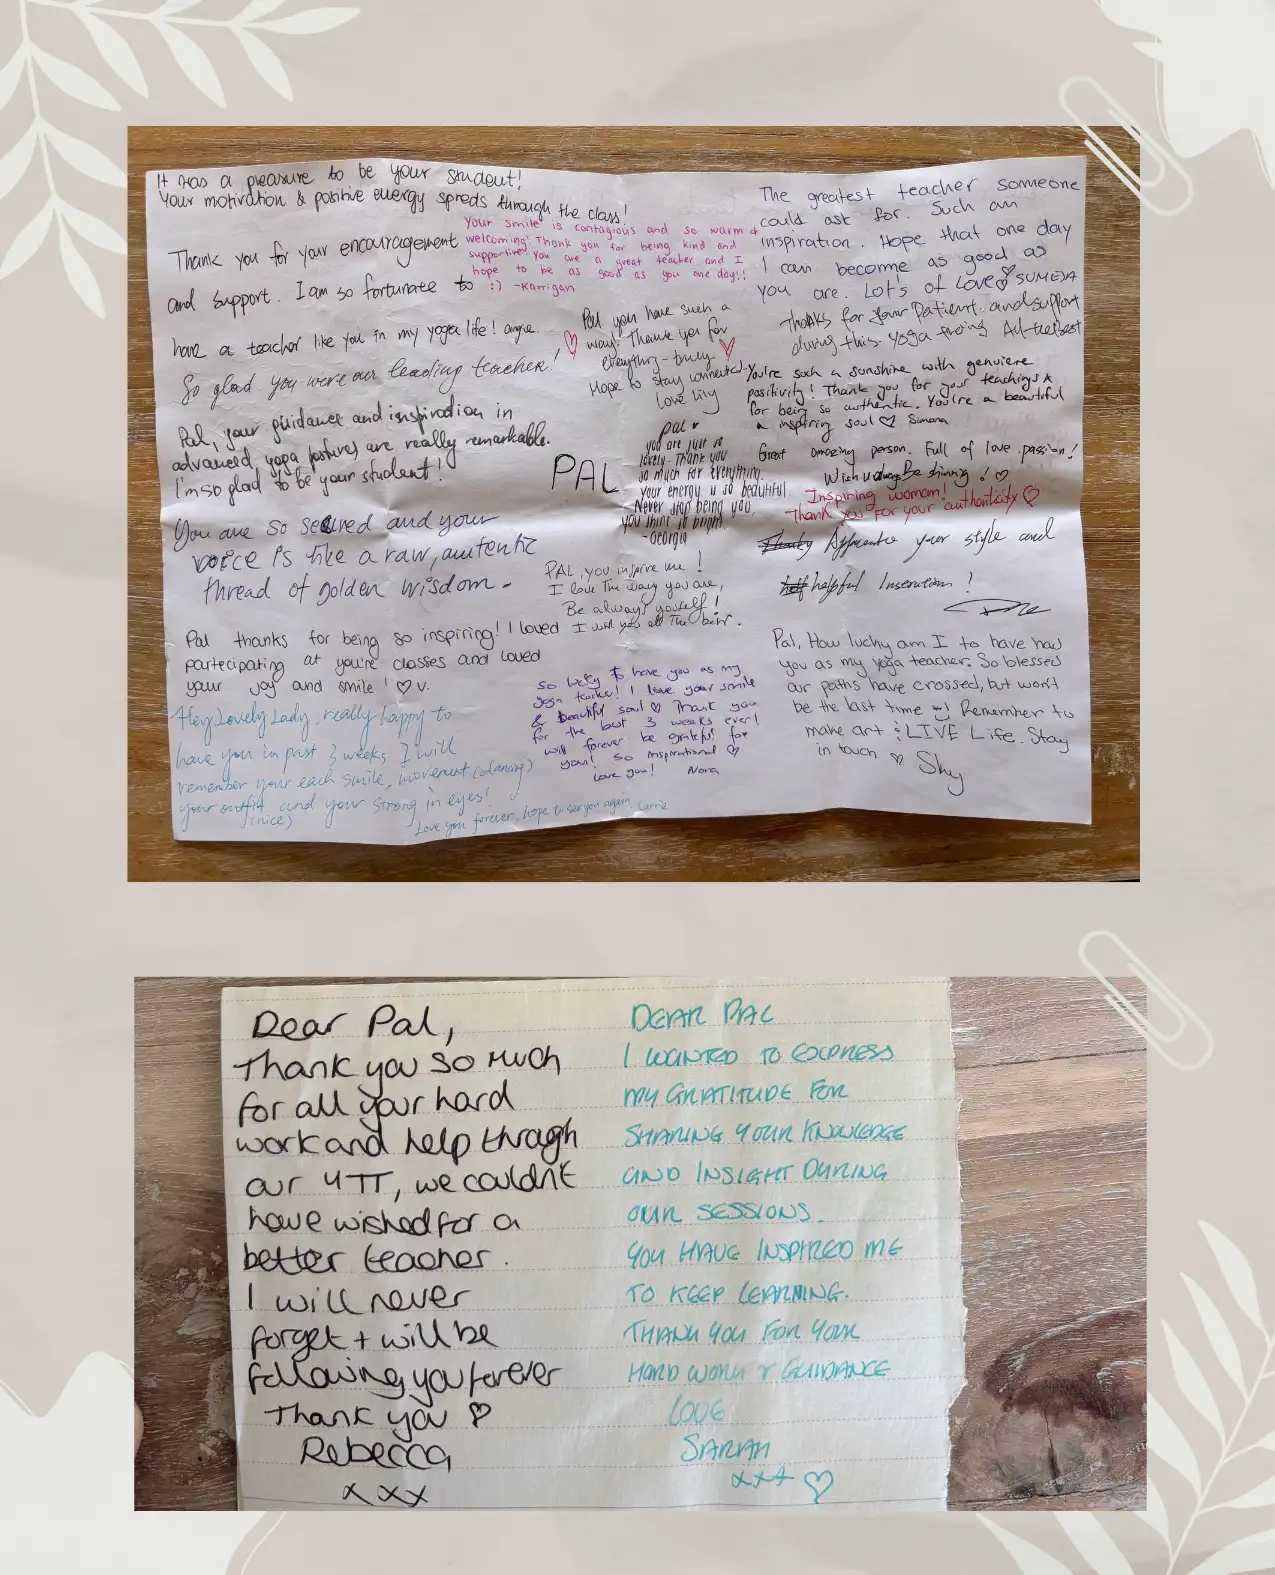 It was a pleasure to be your student!
Your motivation & positive energy spreds through the class!
Thank you for your encouragement
and support. I am so fortunate to
have a teacher like you in my yoga life! angie.
So glad you were our leading teacher!
Pal, your guidance and inspiration in
advanced yoga postures are really remarkable.
I'm so glad to be your student!
You are so seured and your
voice is like a raw, autentic
thread of golden wisdom.
Pal thanks for being so inspiring! I loved
partecipating at you're classes and loved
your joy and smile! ♡ V.
Hey Lovely Lady, really happy to
have you in past 3 weeks I will
remember your each smile, movement (dancing)
your outfit, and your strong in eyes!
(nice)
Love you forever, hope to see you again, Carrie
Your smile is contagious and so warm +
welcoming! Thank you for being kind and
supportive! You are a great teacher and I
hope to be as good as you one day!!
:) -Karrigan
Pal you have such a
way! Thank you for
everything - truly
Hope to stay connected
Love Lily
PAL
Pal ♥
you are just so
lovely. Thank you
so much for everything.
your energy is so beautiful
Never stop being you.
you shine so bright.
-Georgia
PAL, you inspire me!
I love the way you are,
Be always yourself!
I wish you all the best.
So lucky to have you as my
yoga teacher! I love your smile
& beautiful soul ♡ Thank you
for the best 3 weeks ever!
will forever be grateful for
you! So inspirational ♡
Love you! Nora
The greatest teacher someone
could ask for. Such an
inspiration. Hope that one day
I can become as good as
you are. Lot's of Love ♡ SUMEJA
Thanks for your Patient and support
during this yoga All the best
You're such a sunshine with genuiere
positivity! Thank you for your teachings &
for being so authentic. You're a beautiful
& inspiring soul ♡ Simona
Great amazing person. Full of love passion!
Wish u always Be shinning! ♡
Inspiring woman!
Thank you for your authenticity ♡
your style and
helpful
Pal, How lucky am I to have had
you as my yoga teacher. So blessed
our paths have crossed, but won't
be the last time Remember to
make art & LIVE Life. Stay
in touch ♡ Shy
Dear Pal,
Thank you so much
for all your hard
work and help through
our YTT, we couldn't
have wished for a
better teacher.
I will never
forget + will be
following you forever
Thank you ♡
Rebecca
xxx
DEAR PAL
I WANTED TO EXPRESS
MY GRATITUDE FOR
SHARING YOUR KNOWLEDGE
AND INSIGHT DURING
OUR SESSIONS.
YOU HAVE INSPIRED ME
TO KEEP LEARNING.
THANK YOU FOR YOUR
HARD WORK & GUIDANCE
LOVE
SARAH
xxx ♡